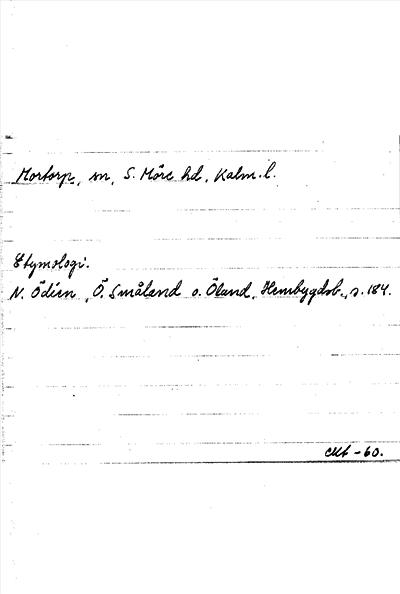 Mortorp, sn, S. Möre hd, Kalm. l.
Etymologi.
N. Ödéen, Ö. Småland o. Öland, Hembygdsb., s. 184.
okt -60.